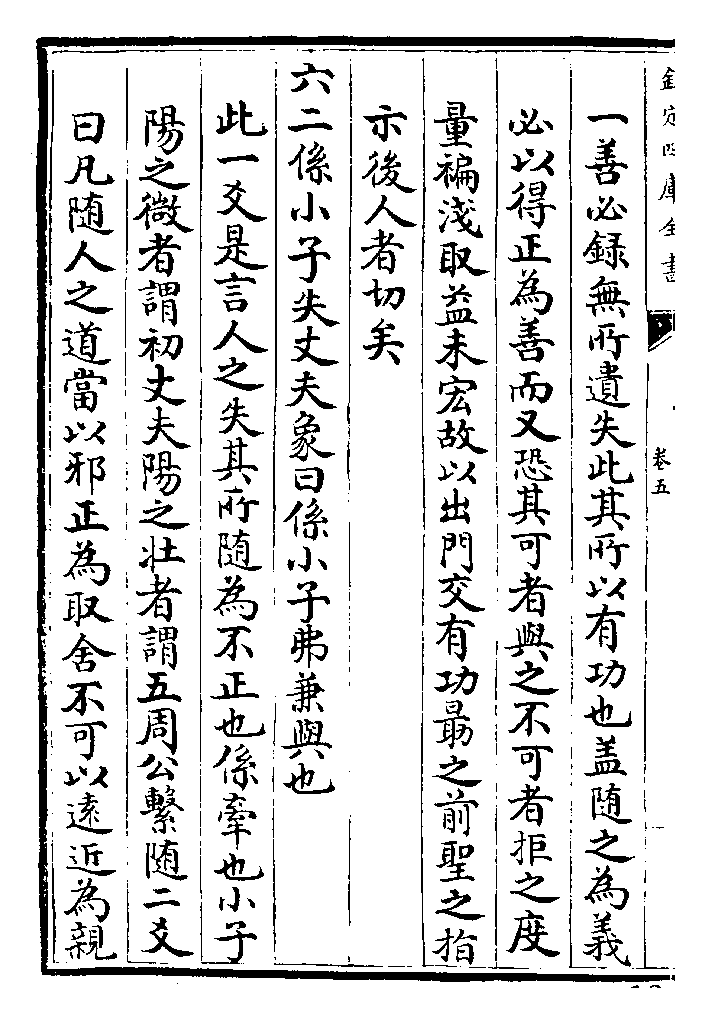 欽定四庫全書
卷五
一善必録無所遺失此其所以有功也盖随之為義
必以得正為善而又恐其可者與之不可者拒之度
量褊淺取益未宏故以出門交有功勗之前聖之指
示後人者切矣
六二係小子失丈夫象曰係小子弗兼與也
此一爻是言人之失其所随為不正也係牽也小子
陽之微者謂初丈夫陽之壮者謂五周公繫随二爻
曰凡随人之道當以邪正為取舍不可以逺近為親